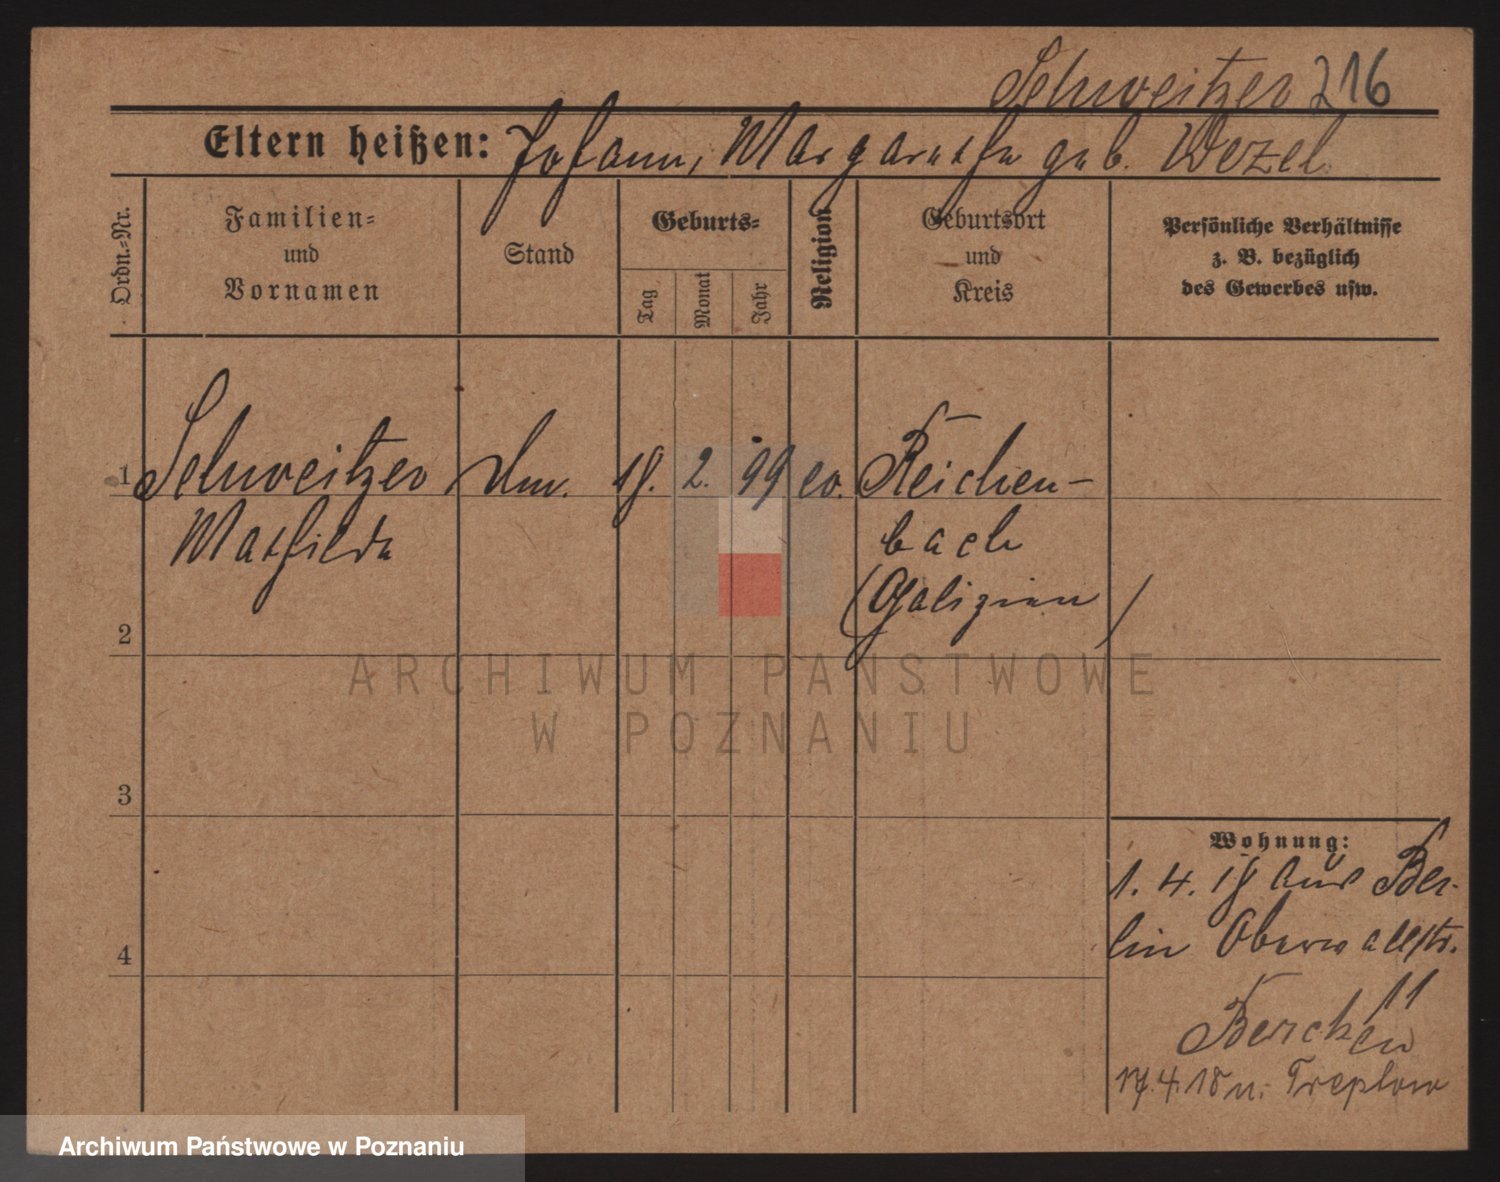 Schweitzer 216
Eltern heißen: Johann, Margarethe geb. Wezel
Ordn.-Nr.
Familien-
und
Vornamen
Stand
Geburts-
Tag
Monat
Jahr
Religion
Geburtsort
und
Kreis
Persönliche Verhältnisse
z. B. bezüglich
des Gewerbes usw.
1 Schweitzer 18. 2. 99 ev. Reichen-
Mathilde bach
(Galizien)
2
3
4
Wohnung:
1. 4. 18 aus Ber-
lin Oberwallstr.
11
17.4.18 n. Treptow
ARCHIWUM PAŃSTWOWE
W POZNANIU
Archiwum Państwowe w Poznaniu